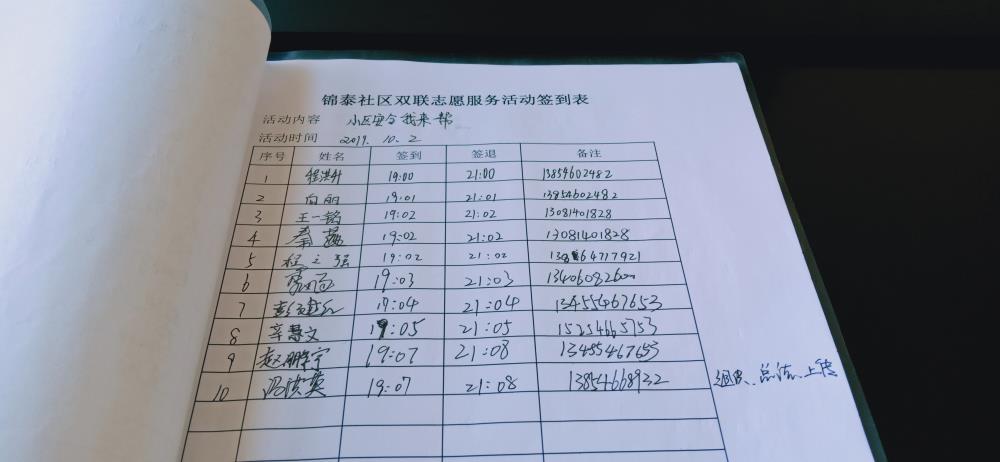 锦泰社区双联志愿服务活动签到表
活动内容 小区安全我来帮
活动时间 2019. 10. 2
序号 姓名 签到 签退 备注
1 程洪升 19:00 21:00 13854602482
2 向丽 19:01 21:01 13854602482
3 王一铭 19:02 21:02 13081401828
4 秦 19:02 21:02 13081401828
5 程之强 19:02 21:02
6 19:03 21:03
7 彭 19:04 21:04 13455467653
8 辛慧文 19:05 21:05
9 赵鹏宇 19:07 21:08 13455467653
10 冯洪英 19:07 21:08 13854668932
总结、上传